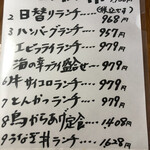 2 日替りランチ‥‥ 968円
3 ハンバーグランチ‥‥ 957円
エビフライランチ‥‥ 979円
海の幸フライ盛合せ‥ 979円
6 牛サイコロランチ‥‥ 979円
7 とんかつランチ‥‥ 979円
8 鳥からあげ定食‥‥ 1408円
9 うな玉丼ランチ‥‥ 1628円